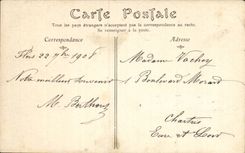 Carte Postale
Tous les pays étrangers n'acceptent pas la correspondance au recto.
Se renseigner à la poste.
Correspondance
Adresse
22 7bre 1908
Notre meilleur souvenir
M. Berthou
Madame Vachey
1 Boulevard Morard
Chartres
Eure et Loir